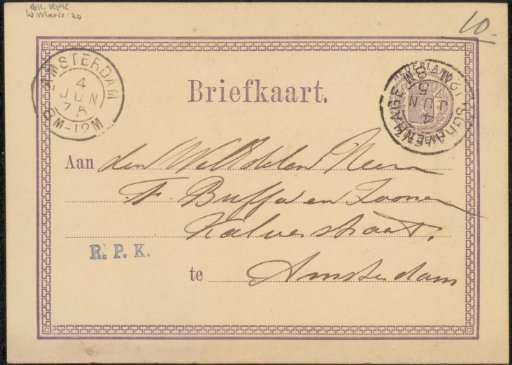 Coll. RPK
W. Maris-20
10
AMSTERDAM
4
JUN
75
8M-12M
'SGRAVENHAGE
4
JUN
75
Briefkaart.
Aan den WelEdelen Heer
F. Buffa en Zonen
Kalverstraat.
R. P. K.
te Amsterdam